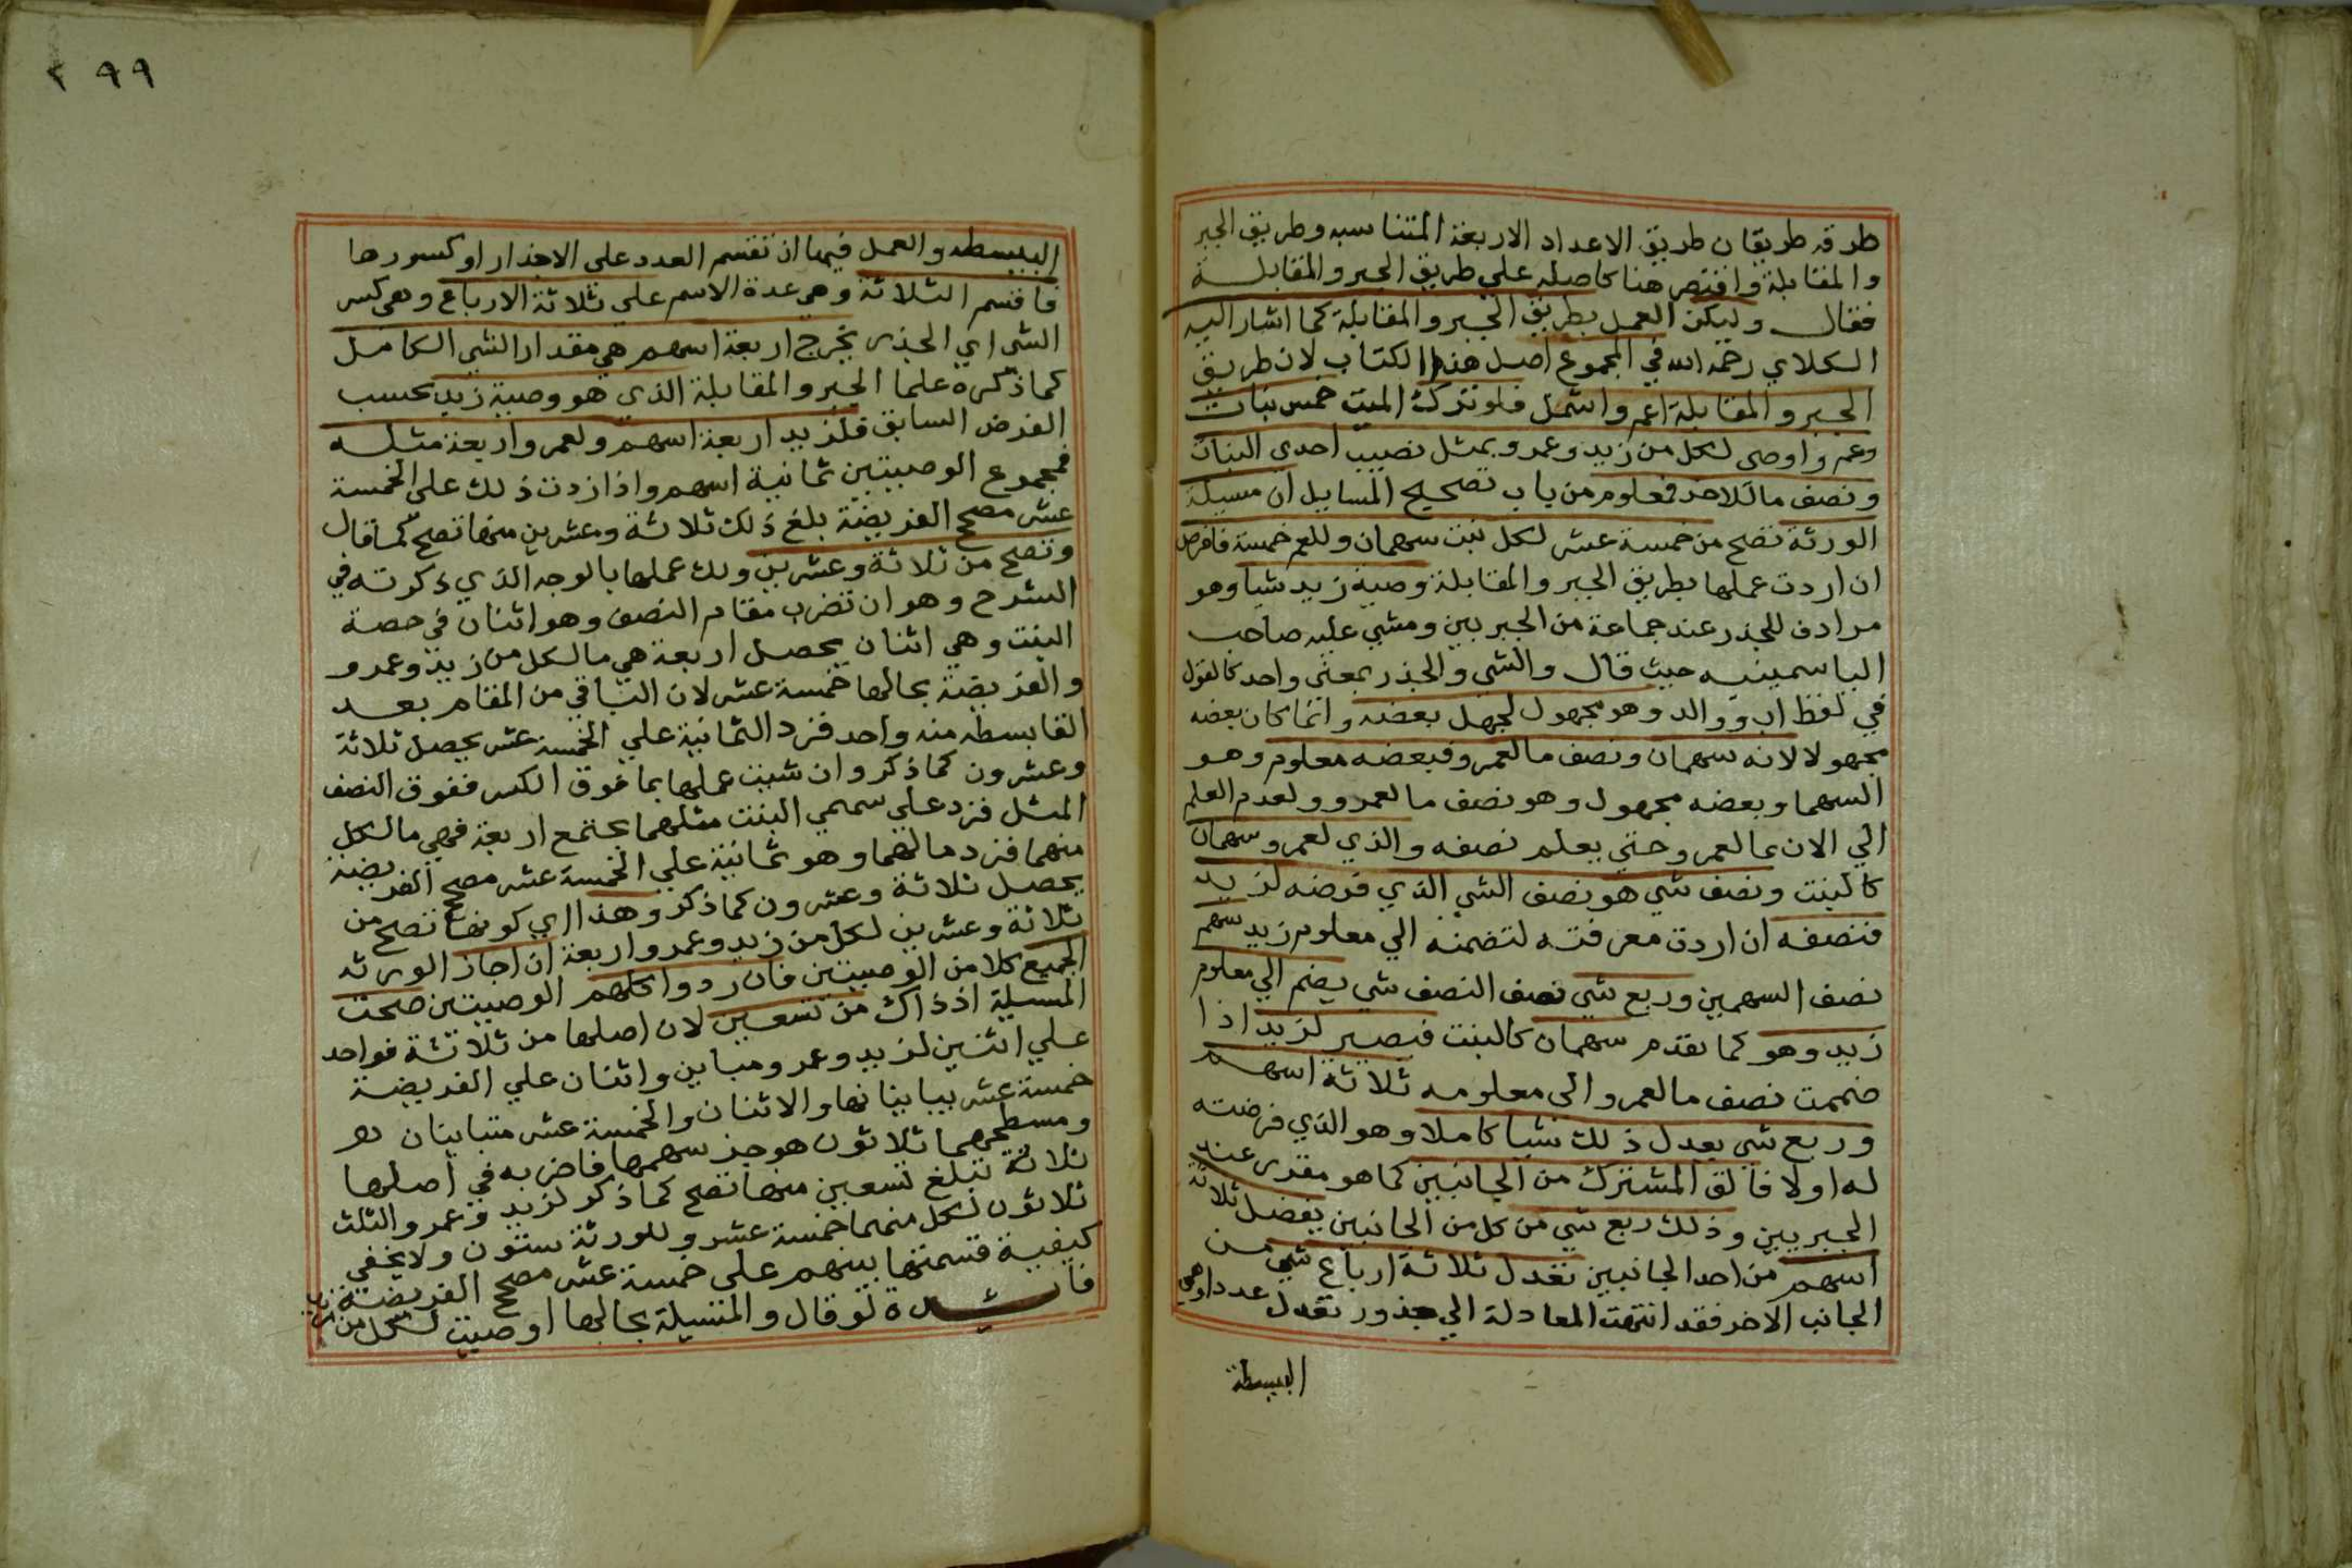 طرقه طريقان طريق الاعداد الاربعة المتناسبه وطريق الجبر
والمقابلة واقتصر هنا كاصله علي طريق الجبر والمقابلة
فقال وليكن العمل بطريق الجبر والمقابلة كما اشار اليه
الكلاي رحمه الله في المجموع اصل هذا الكتاب لان طريق
الجبر والمقابلة اعم واشمل فلو ترك الميت خمس بنات
وعم واوصي لكل من زيد وعمرو بمثل نصيب احدي البنات
ونصف ما للاخر فمعلوم من باب تصحيح المسايل ان مسيلة
الورثة تصح من خمسة عشر لكل بنت سهمان وللعم خمسة فافرض
ان اردت عملها بطريق الجبر والمقابلة وصية زيد شيا وهو
مرادف للجذر عند جماعة من الجبريين ومشي عليه صاحب
الياسمينيه حيث قال والشي والجذر بمعني واحد كالقول
في لفظ اب ووالد وهو مجهول لجهل بعضه وانما كان بعضه
مجهولا لانه سهمان ونصف ما لعمرو فبعضه معلوم وهو
السهما وبعضه مجهول وهو نصف ما لعمرو ولعدم العلم
الي الان بما لعمرو حتي يعلم نصفه والذي لعمرو سهمان
كالبنت ونصف شي هو نصف الشي الذي فرضه لزيد
فنصفه ان اردت معرفته لتضمنه الي معلوم زيد سهم
نصف السهمين وربع شي نصف النصف شي يضم الي معلوم
زيد وهو كما تقدم سهمان كالبنت فيصير لزيد اذا
ضممت نصف ما لعمرو الي معلومه ثلاثة اسهم
وربع شي يعدل ذلك شيا كاملا وهو الذي فرضته
له اولا فالق المشترك من الجانبين كما هو مقدر عند
الجبريين وذلك ربع شي من كل من الجانبين يفضل ثلاثة
اسهم من احد الجانبين تعدل ثلاثة ارباع شي من
الجانب الاخر فقد انتهت المعادلة الي جذور تعدل عددا وهي
البسيطة
٢٩٩
البسيطه والعمل فيها ان تقسم العدد علي الاجذار او كسورها
فاقسم الثلاثة وهي عدة الاسهم علي ثلاثة الارباع وهي كسر
الشي اي الجذر يخرج اربعة اسهم هي مقدار الشي الكامل
كما ذكره علما الجبر والمقابلة الذي هو وصية زيد بحسب
الفرض السابق فلزيد اربعة اسهم ولعمرو اربعة مثله
فمجموع الوصيتين ثمانية اسهم واذا زدت ذلك علي الخمسة
عشر مصح الفريضة بلغ ذلك ثلاثة وعشرين منها تصح كما قال
وتصح من ثلاثة وعشرين ولك عملها بالوجه الذي ذكرته في
الشرح وهو ان تضرب مقام النصف وهو اثنان في حصة
البنت وهي اثنان يحصل اربعة هي ما لكل من زيد وعمرو
والفريضة بحالها خمسة عشر لان الباقي من المقام بعد
القا بسطه منه واحد فزد الثمانية علي الخمسة عشر يحصل ثلاثة
وعشرون كما ذكر وان شيت عملها بما فوق الكسر ففوق النصف
المثل فزد علي سهمي البنت مثلهما يجتمع اربعة فهي ما لكل
منهما فزد مالهما وهو ثمانية علي الخمسة عشر مصح الفريضة
يحصل ثلاثة وعشرون كما ذكر وهذا اي كونها تصح من
ثلاثة وعشرين لكل من زيد وعمرو اربعة ان اجاز الورثه
الجميع كلا من الوصيتين فان ردوا كلهم الوصيتين صحت
المسيلة اذ ذاك من تسعين لان اصلها من ثلاثة فواحد
علي اثنين لزيد وعمرو مباين واثنان علي الفريضة
خمسة عشر يباينانها والاثنان والخمسة عشر متباينان
ومسطحهما ثلاثون هو جز سهمها فاضربه في اصلها
ثلاثة تبلغ تسعين منها تصح كما ذكر لزيد وعمرو الثلث
ثلاثون لكل منهما خمسة عشر وللورثة ستون ولا يخفي
كيفية قسمتها بينهم علي خمسة عشر مصح الفريضة
فايدة لو قال والمسيلة بحالها اوصيت لكل من زيد